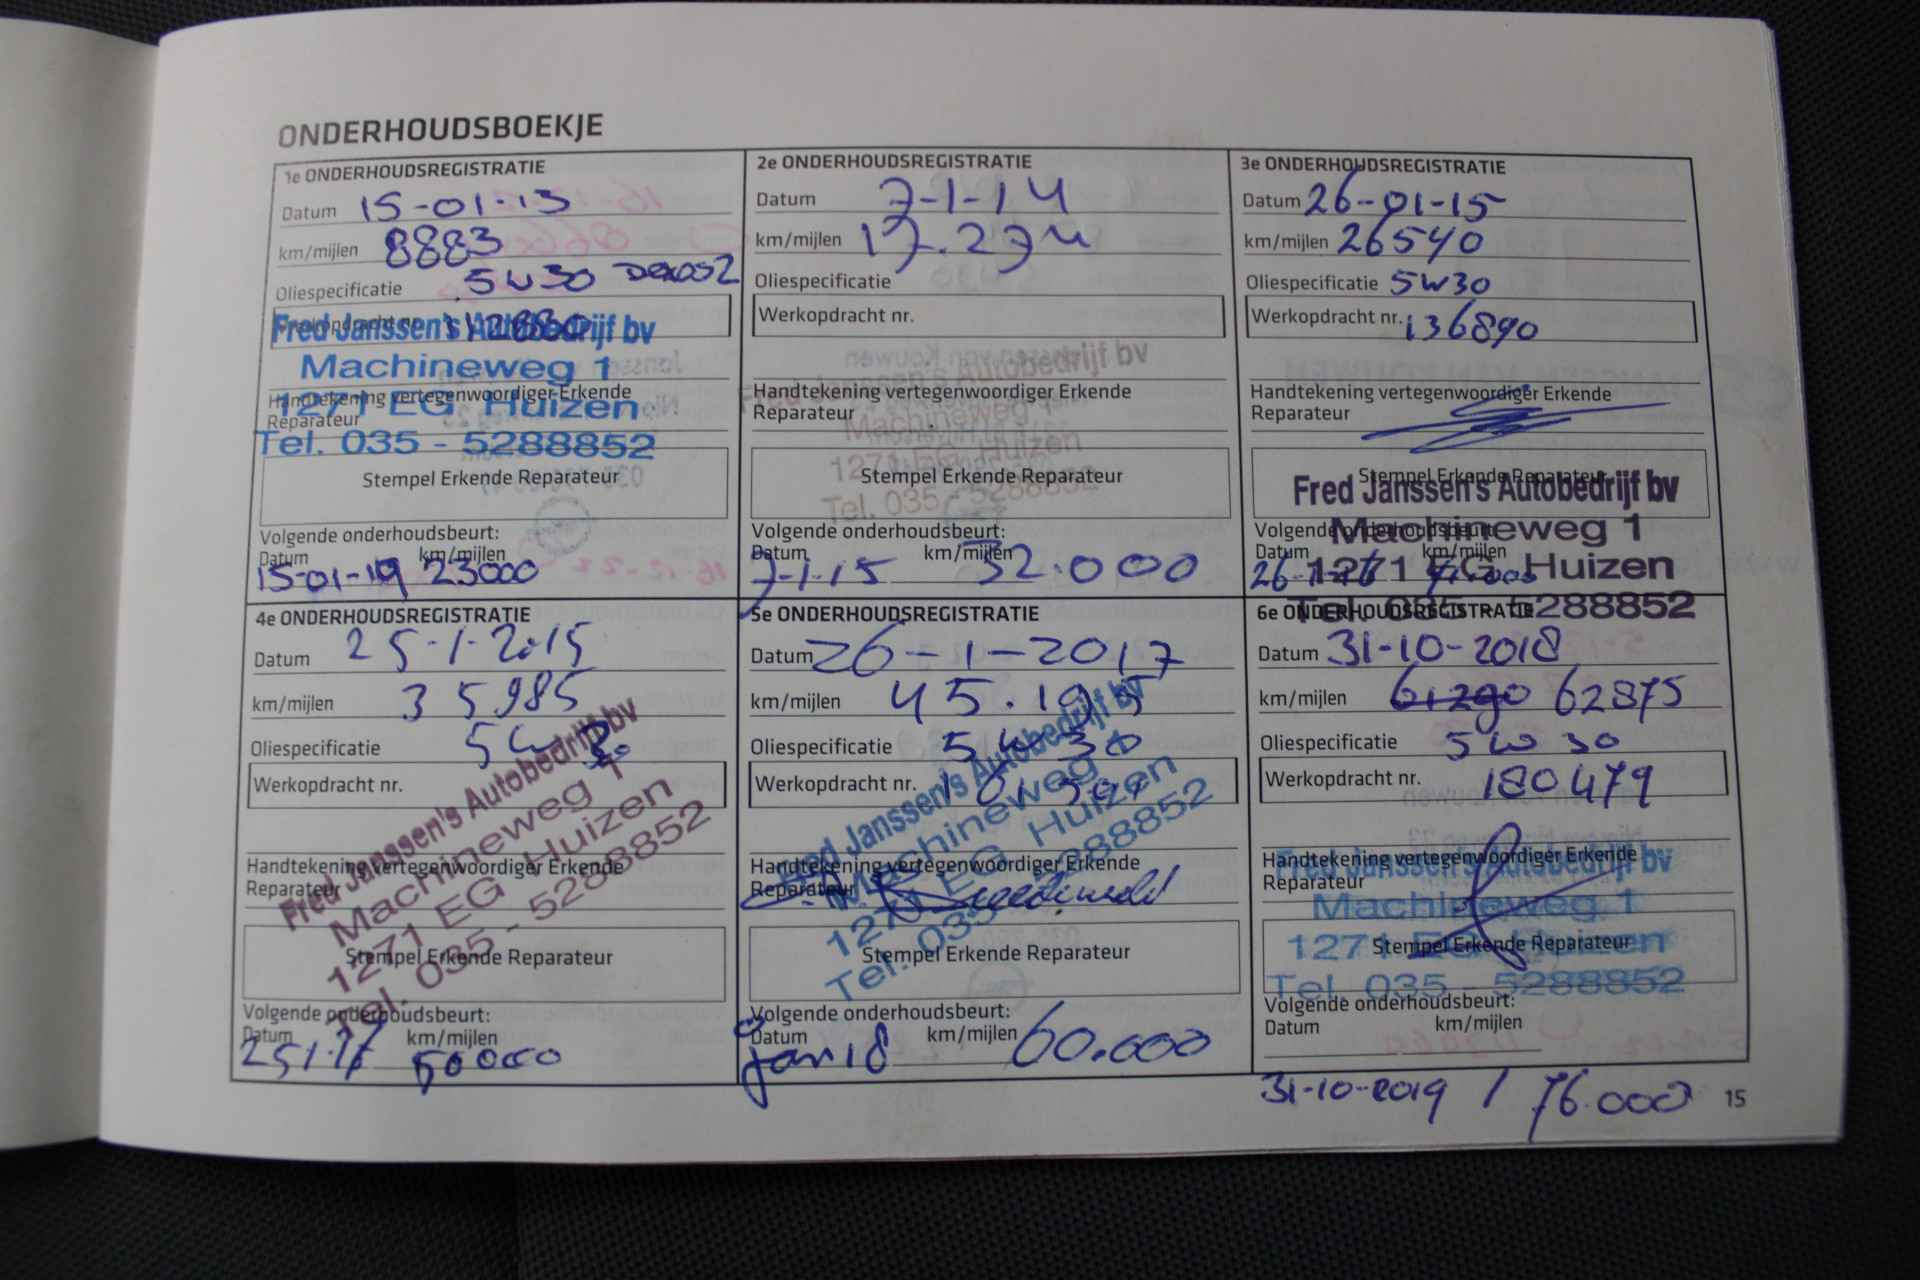 ONDERHOUDSBOEKJE
1e ONDERHOUDSREGISTRATIE
Datum 15-01-13
km/mijlen 8883
Oliespecificatie 5W30 Dexos2
Werkopdracht nr.
Fred Janssen's Autobedrijf bv
Machineweg 1
Handtekening vertegenwoordiger Erkende
Reparateur
1271 EG Huizen
Tel. 035 - 5288852
Stempel Erkende Reparateur
Volgende onderhoudsbeurt:
Datum km/mijlen
15-01-19 23000
2e ONDERHOUDSREGISTRATIE
Datum 7-1-14
km/mijlen 17.274
Oliespecificatie
Werkopdracht nr.
Fred Janssen's Autobedrijf bv
Handtekening vertegenwoordiger Erkende
Reparateur
Machineweg 1
1271 EG Huizen
Tel. 035 - 5288852
Stempel Erkende Reparateur
Volgende onderhoudsbeurt:
Datum km/mijlen
7-1-15 32.000
3e ONDERHOUDSREGISTRATIE
Datum 26-01-15
km/mijlen 26540
Oliespecificatie 5W30
Werkopdracht nr. 136890
Handtekening vertegenwoordiger Erkende
Reparateur
Stempel Erkende Reparateur
Fred Janssen's Autobedrijf bv
Machineweg 1
1271 EG Huizen
Tel. 035 - 5288852
Volgende onderhoudsbeurt:
Datum km/mijlen
4e ONDERHOUDSREGISTRATIE
Datum 25-1-2015
km/mijlen 35985
Oliespecificatie 5W30
Werkopdracht nr.
Fred Janssen's Autobedrijf bv
Machineweg 1
1271 EG Huizen
Tel. 035 - 5288852
Handtekening vertegenwoordiger Erkende
Reparateur
Stempel Erkende Reparateur
Volgende onderhoudsbeurt:
Datum km/mijlen
50000
5e ONDERHOUDSREGISTRATIE
Datum 26-1-2017
km/mijlen 45.195
Oliespecificatie 5W30
Werkopdracht nr.
Fred Janssen's Autobedrijf bv
Machineweg 1
1271 EG Huizen
Tel. 035 - 5288852
Handtekening vertegenwoordiger Erkende
Reparateur
Stempel Erkende Reparateur
Volgende onderhoudsbeurt:
Datum km/mijlen
jan 18 60.000
6e ONDERHOUDSREGISTRATIE
Datum 31-10-2018
km/mijlen 61290 62875
Oliespecificatie 5W30
Werkopdracht nr. 180479
Handtekening vertegenwoordiger Erkende
Reparateur
Fred Janssen's Autobedrijf bv
Machineweg 1
1271 EG Huizen
Tel. 035 - 5288852
Stempel Erkende Reparateur
Volgende onderhoudsbeurt:
Datum km/mijlen
31-10-2019 / 76.000
15